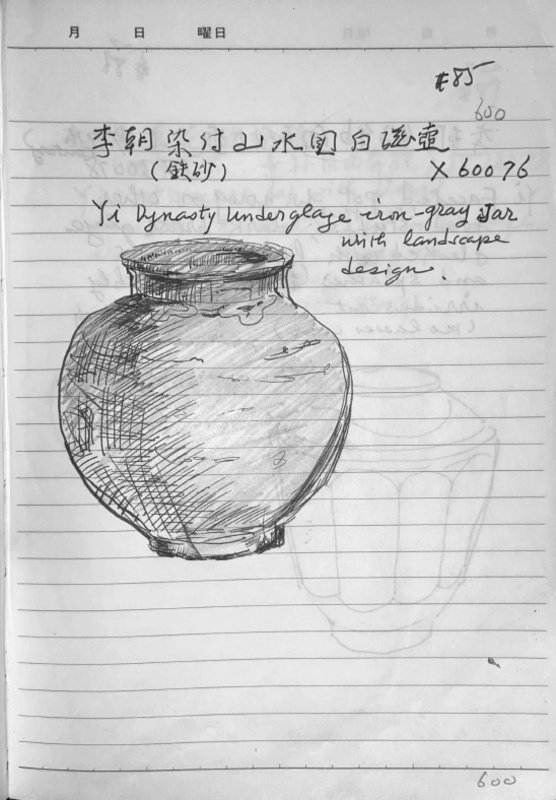 月 日 曜日
#85
600
李朝染付山水図白磁壺
(鉄砂) X60076
Yi Dynasty Underglaze iron-gray Jar
with landscape
design.
600